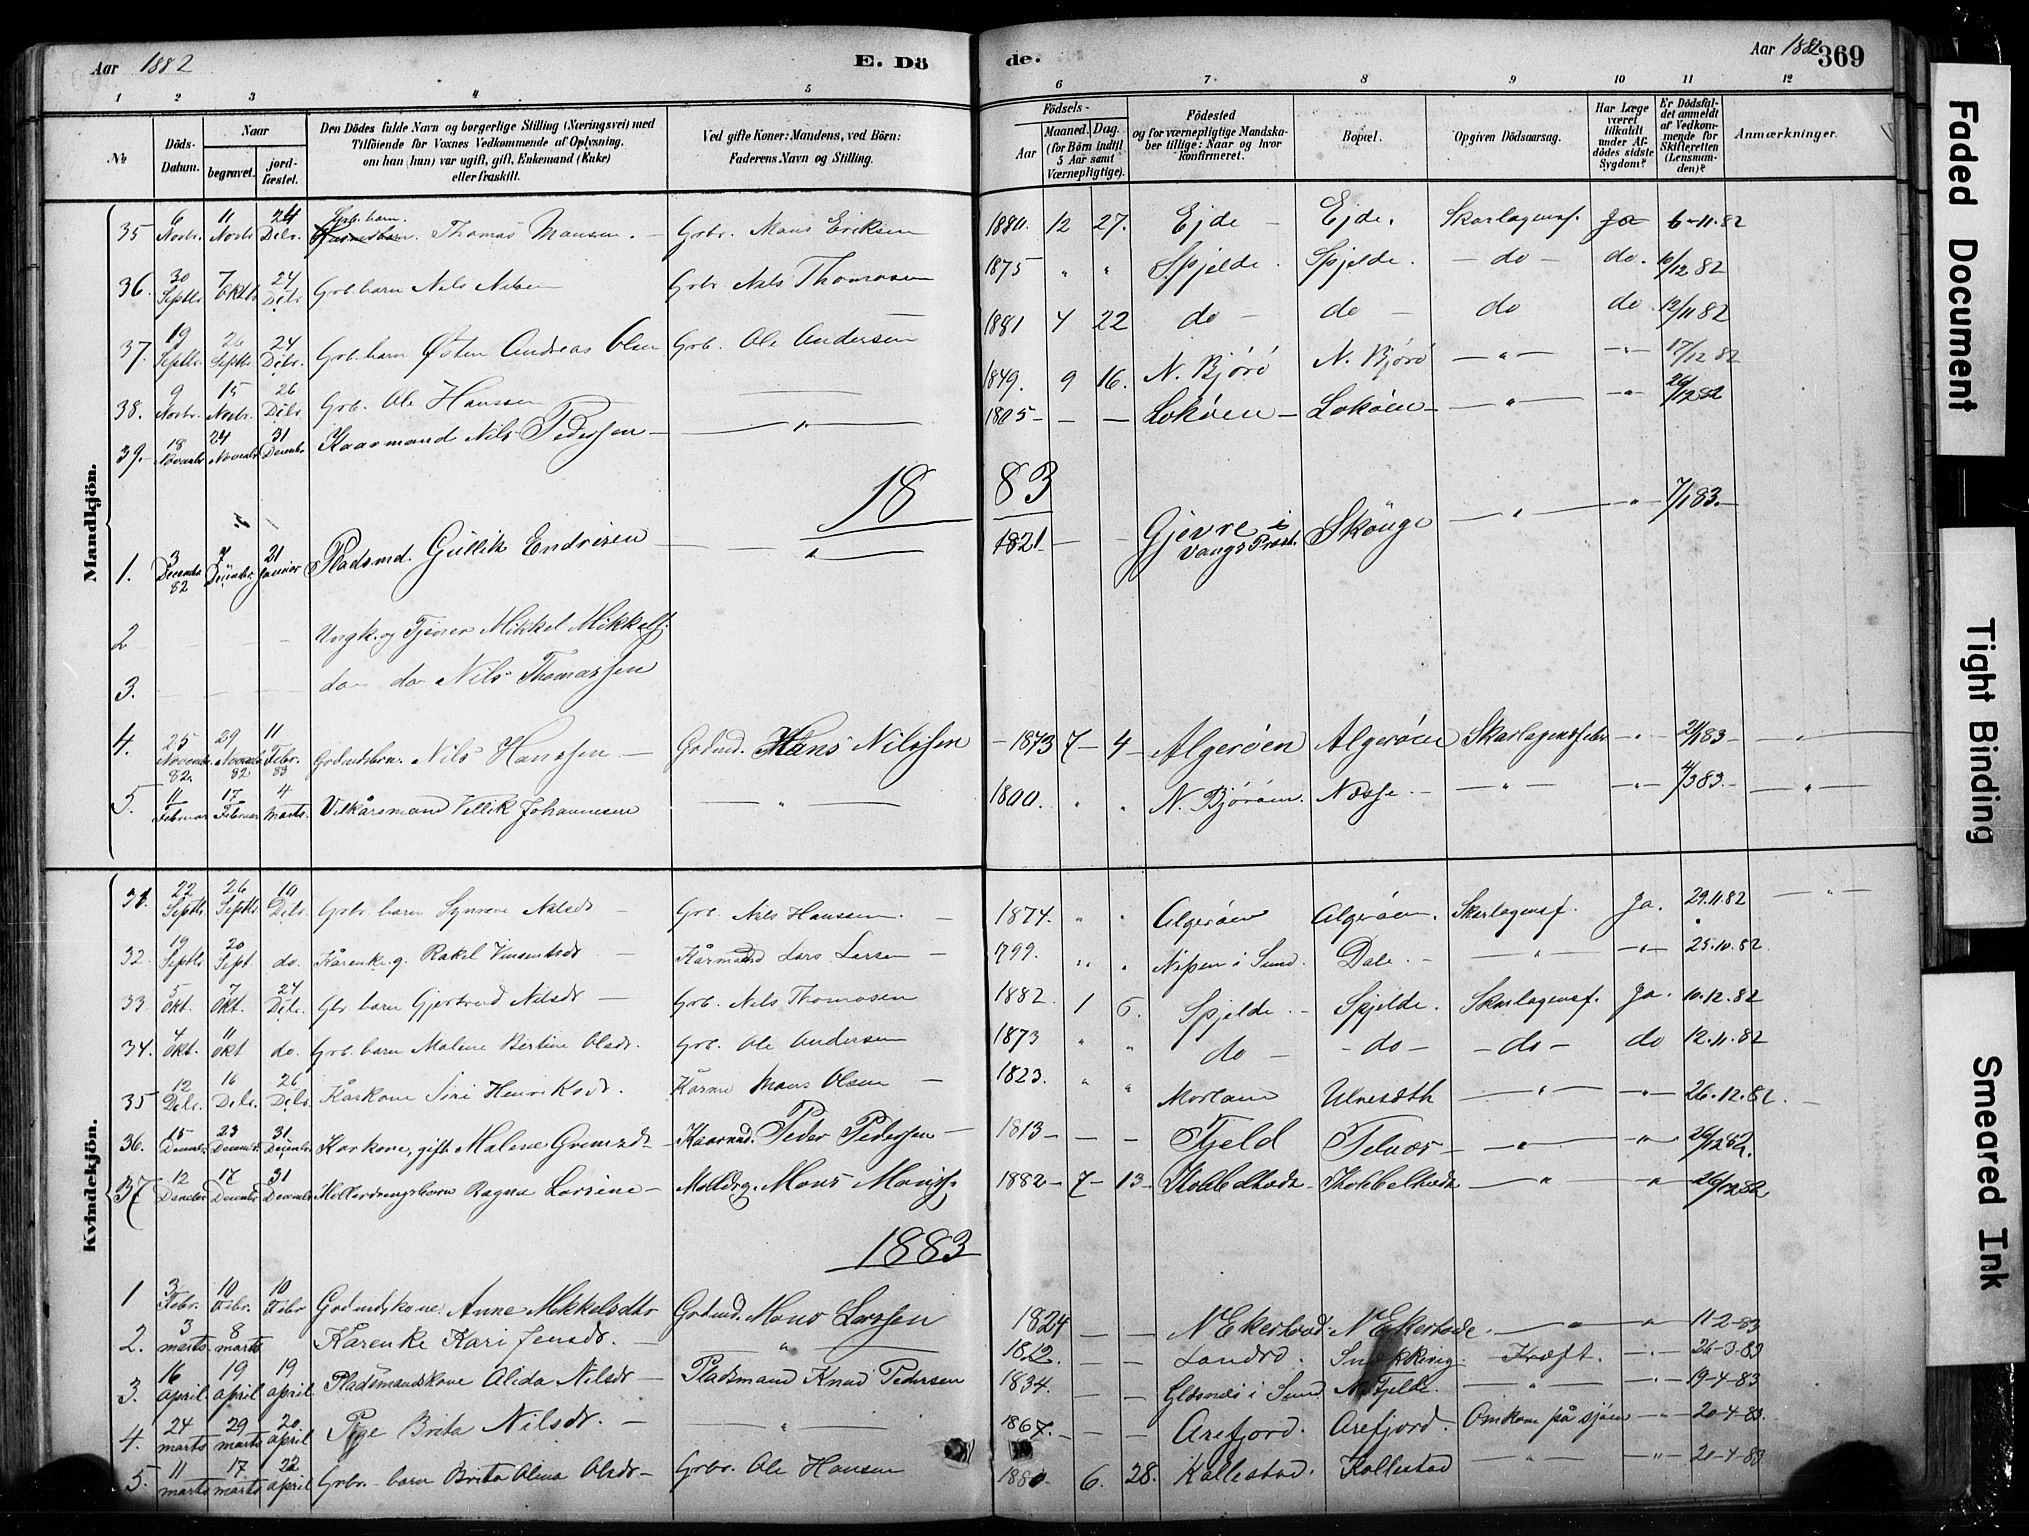 Aar 1882
E. Dö
de.
Aar 1882
369
1 2 3 4 5 6 7 8 9 10 11 12
№
Döds-Datum.
Naar
begravet.
jord-fæstet.
Den Dödes fulde Navn og borgerlige Stilling (Næringsvei) med
Tilföiende for Voxnes Vedkommende af Oplysning.
om han (hun) var ugift, gift, Enkemand (Enke)
eller fraskilt.
Ved gifte Koner: Mandens, ved Börn:
Faderens Navn og Stilling.
Födsels-
Aar
Maaned. Dag.
(for Börn indtil
5 Aar samt
Værnepligtige).
Födested
og for værnepligtige Mandska-
ber tillige: Naar og hvor
konfirmeret.
Bopæl.
Opgiven Dödsaarsag.
Har Læge
været
tilkaldt
under Af-
dödes sidste
Sygdom?
Er Dödsfal-
det anmeldt
af Vedkom-
mende for
Skifteretten
(Lensman-
den)?
Anmærkninger.
Mandkjön.
35 6 Novbr. 11 Novbr. 24 Dcbr. Grb. barn. Thomas Mansen. — Grbr. Mons Eriksen 1880. 12 27. Ejde — Ejde. Skarlagensf. Ja 6-11.82
36. 30 Septbr. 7 Oktb. 24 Dcbr. Grb. barn Nils Nilsen Grbr Nils Thomasen 1875 " " Spjelde. Spjelde. — do — do. 10/12 82
37. 19 Septbr. 26 Septbr. 24 Dcbr. Grb. barn Østen Andreas Olsen Grb. Ole Andersen 1881 4 22 do — do — do do 12/11 82
38. 9 Novbr. 15 Novbr. 26 Dcbr. Grb. Ole Hanssen — 1849. 9 16. N. Bjørö N. Bjørö — " — " 17/12 82
39. 18 Novembr 24 Novembr 31 Decembr Kaarmand Nils Pederssen — " — 1805 — — Lokøen — Lokøen — " — " 26/12 82
18 83
1. 3 Decembr 82 7 Decembr. 21 Januar Pladsmd. Gullik Endresen — " — 1821 — Gjevre i Vangs Præst. Sköuge — " — " 7/1 83.
2 Ungk. og Tjener Mikkel Mikkels.
3. do do Nils Thomassen
4. 25 Novembr. 82. 29 Novembr. 82 11 Febr. 83 Grdmdsbrn. Nils Hanssen — Grdmd. Hans Nilssen — 1873 7 — 4 — Algerøen Algerøen Skarlagensfeber " 21/1 83 — " —
5. 11 Februar 17 Februar 4 Marts. Vilkårsmand Villik Johannesen — " — 1800. " " N. Bjøröen. Næsse. — " — " 4/3 83. — " —
Kvindekjön.
31. 22 Septbr. 26 Septbr. 10 Dcbr. Grbr barn Synneve Nilsdr — Grb. Nils Hanssen. — 1874. " " Algerøen Algerøen. Skarlagensf. Ja. 29.11.82 — " —
32. 19 Septbr 20 Sept. do. Kårenke g. Rakel Vinsentsdr — Kårmand Lars Larsen — 1799. " " i Sund. Dale. — " — " 25.10.82
33. 5 Okt. 7 Okt. 24 Dcbr. Gbr barn Gjertrud Nilsdr — Grb. Nils Thomasen 1882. 1 6. Spjelde. — Spjelde. Skarlagensf. Ja. 10.12.82
34. 4 Okt. 11 Okt do. Grb. barn Malene Bertine Olsdr. Grb. Ole Andersen 1873 " " do — do — do — do 12.11.82
35 12 Dcbr. 16 Dcbr. 26 Dcbr. Kårkone Siri Henriksdr. Kårmd Mons Olsen — 1823. " " Morland Ulvesæth — " — " 26.12.82.
36. 15 Decembr. 23 Decembr. 31 Decembr. Karkone, gift Malene Grimsdr — Kaarmd. Peder Pedersen — 1813 — — — Fjeld Telnæs — " — " 26/12 82.
37 12 Decebr 17 Decembr. 31 Decembr. Ragna Larsine — Mons Monss. 1882 — 7 — 13 — Kobbeltvedt — Kobbeltvedt — " — " 26/12 82
1883
1 3 Febr. 10 Febr. 10 Febr Grdmdskone Anne Mikkelsdtr Grdmd. Mons Larssen 1824 — — N. Ekerhovd. N. Ekerhovde. — " — " 11-2-83
2. 3 marts 8 marts Kårenke Kari Jensdr. — " — 1812. — — Landrö. Kræft. — " 26-3-83
3. 16 april 19 april 19 april Pladsmandskone Alida Nilsdr — Pladsmand Knud Pedersen 1834. — — Glæsnes i Sund N. Fjelde. — " — " 19-4-83
4. 24 marts 29 marts 20 april Pige Brita Nilsdr. — " — 1867. — — Arefjord. Arefjord. Omkom på sjøen — " 20-4-83.
5. 11 marts 17 marts 22 april Grbr. barn Brita Olina Olsdr — Grbr. Ole Hansen 1880. 6. 28. Kallestad. Kallestad — " — " 20-4-83
Faded Document
Tight Binding
Smeared Ink